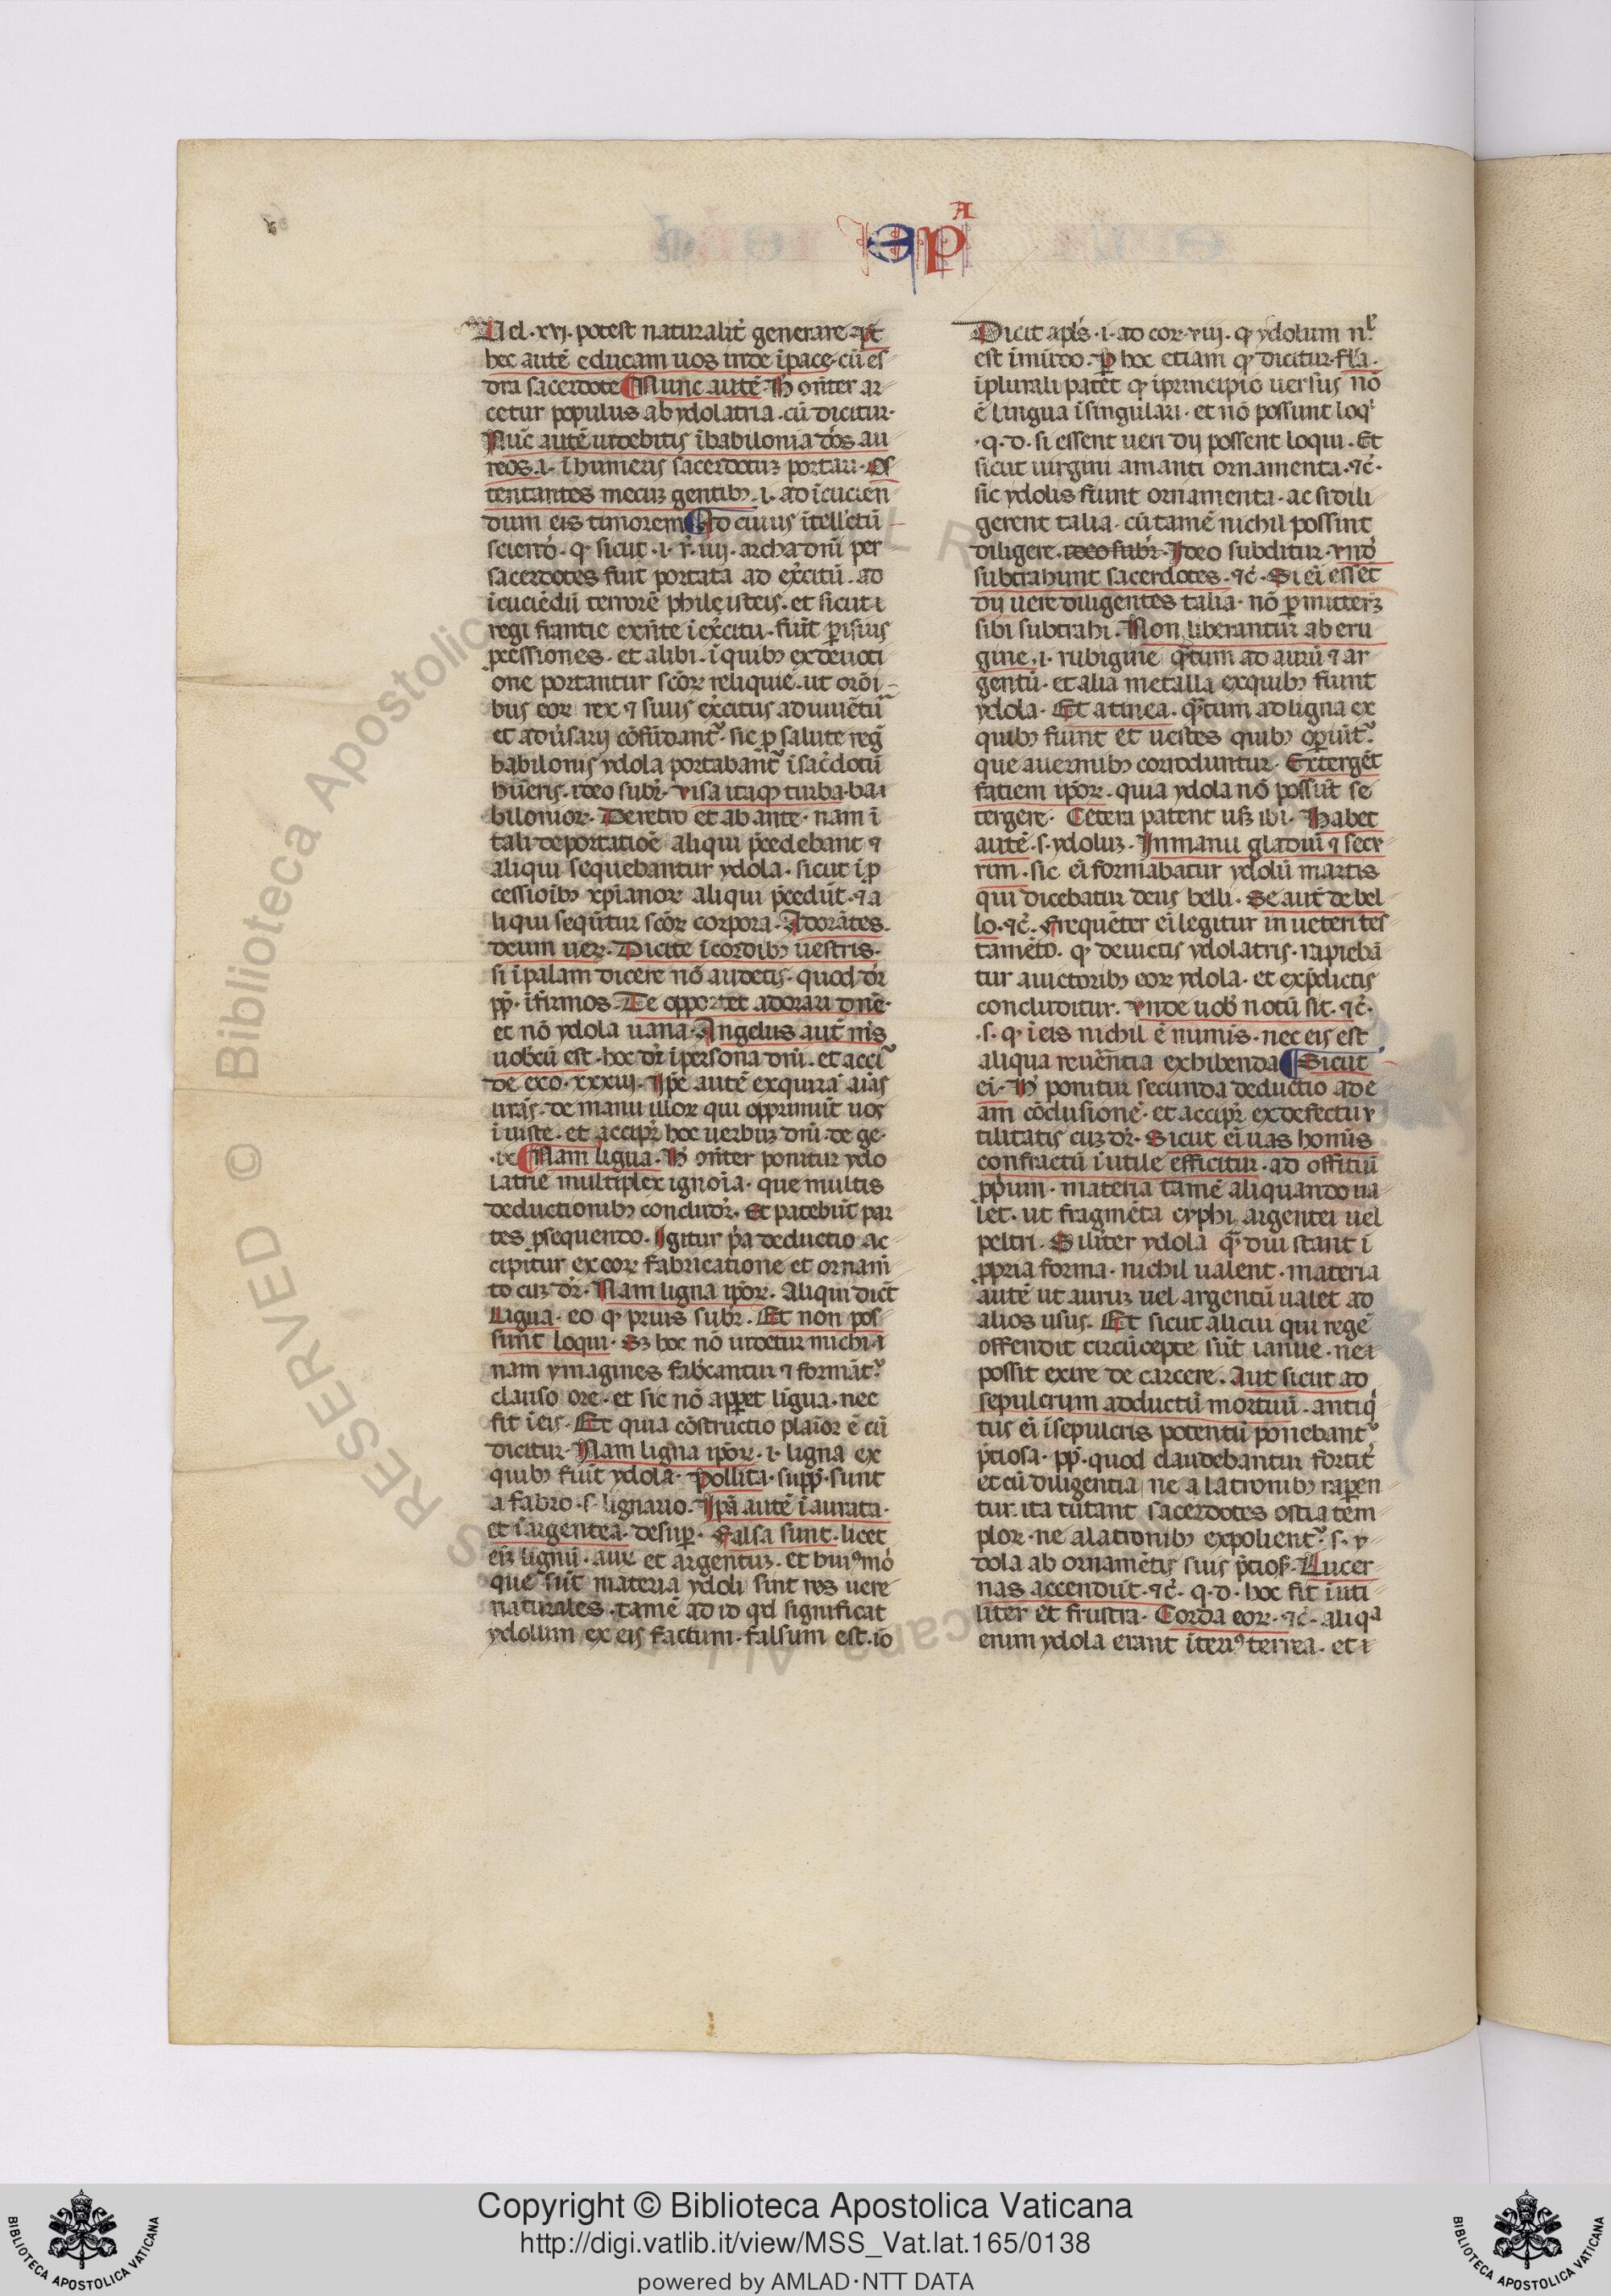 epᴬ
Uel .xvi. potest naturalit̾ generare. Pꝰt
hec autē educam uos inde ī pace. cū es
dra sacerdote ¶Nunc autē. H̾ oñter ar
cetur populus ab ydolatria. cū dicitur.
Nūc autē uidebitis ī babilonia dōs au
reos .i. ī humeris sacerdotuꝫ portari. Os
tentantes metuꝫ gentibꝫ .i. ad īcucien
dum eis timorem ¶Ad cuius ītellc̄tū
sciendō. qꝫ sicut .i. r̄. iiij. archa dn̄i per
sacerdotes fuit portata ad exc̄itū. ad
īcuciēdū terrorē phileisteis. et sicut i
regi francie exn̄te ī exc̄itu. fiūt p̱ isius
ꝓcessiones. et alibi. ī quibꝫ ex deuoti
one portantur scōꝝ reliquie. ut orōi
bus eoꝝ rex ⁊ suus exc̄itus adiuuētū
et adũsarij cōfūdant᷑. sic p̱ salute reg̃
babilonis ydola portabant᷑ ī sac̄dotū
hūeris. ideo subr̄. Visa itaqꝫ turba. ba i
bilonioꝝ. De retro et ab ante. nam ī
tali deportatiōe aliqui p̄cedebant ⁊
aliqui sequebantur ydola. sicut ī ꝓ
cessioībꝫ xp̄ianoꝝ aliqui p̄cedūt. ⁊ a
li qui seqūtur scōꝝ corpora. Adorātes.
deum ueꝝ. Dicite ī cordibꝫ uestris.
si ī palam dicere nō audetis. quod dr̄
pp̄. īfirmos. Te opportet adorari dn̄e.
et nō ydola uana. Angelus aut̄ m̄s
uob̄cū est. hoc dr̄ ī persona dn̄i. et acci᷑
de exo. xxxiij. Ip̄e autē exquirā aīas
ur̄as. de manu illoꝝ qui opprimūt uos
ī iuste. et accipr̄ hoc uerbuꝫ dn̄i. de ge.
.ix ¶Nam ligua. H̾ oñter ponitur ydo
latrie multiplex ignoīa. que multis
deductionibꝫ concludr̄. Et patebūt par
tes ꝓsequendo. Igitur p̄a deductio ac
cipitur ex eoꝝ fabricatione et ornam̄
to cuꝫ dr̄. Nam ligna ip̄oꝝ. Aliqui dic̄t
Ligua. eo qꝫ prius subr̄. Et non pos
sunt loqui. Sꝫ hoc nō uidetur michi. i
nam ymagines fab̄cantur ⁊ formāt᷑
clauso ore. et sic nō app̱et ligua. nec
fit ī eis. Et quia cōstructio plaīor ē cū
dicitur. Nam ligna ip̄oꝝ .i. ligna ex
quibꝫ fiūt ydola. Pollita. supp̄. sunt
a fabro .s. lignario. Ip̄a autē ī aurata.
et ī argentea. desup̱. Falsa sunt. licet
eīꝫ lignū. auꝝ et argentuꝫ. et hui᷒mō
que sūt materia ydoli sint res uere
naturales. tamē ad id qd̄ significat
ydolum ex eis factum. falsum est. iō
Dicit apl̄s .i. ad cor. viii. qꝫ ydolum nl̄
est ī mūdo. P̱ hoc etiam qꝫ dicitur. fl̄a.
ī plurali patet qꝫ ī principio uersus nō
ē lingua ī singulari. et nō possunt loqⁱ
.q. d. si essent ueri dij possent loqui. Et
sicut uirgini amanti ornamenta. ⁊c̄.
sic ydolis fiunt ornamenta. ac si dili
gerent talia. cū tamē nichil possint
diligere. ideo subr̄. Ideo subditur. Vn̄d
subtrahunt sacerdotes. ⁊c̄. Si eī essēt
dij uere diligentes talia. nō p̱mitterꝫ
sibi subtrahi. Non liberantur ab eru
gine .i. rubigine qᷓtum ad aurū ⁊ ar
gentū. et alia metalla ex quibꝫ fiunt
ydola. Et a tinea. qᷓtum ad ligna ex
quibꝫ fiunt et uestes quibꝫ op̱iūt᷑.
que a uermibꝫ corroduntur. Extergēt
faciem ip̄oꝝ. quia ydola nō possūt se
tergere. Cetera patent usqꝫ ibi. Habet
autē .s. ydoluꝫ. In manu gladiū ⁊ secu
rim. sic eī formabatur ydolū martis
qui dicebatur deus belli. Se aut̄ de bel
lo. ⁊c̄. Frequēter eī legitur in ueteri tes
tamēto. qꝫ deuictis ydolatris. rapiebā
tur a uictoribꝫ eoꝝ ydola. et ex p̄dictis
concluditur. Vnde uob̄ notū sit. ⁊c̄.
.s. qꝫ ī eis nichil ē numīs. nec eis est
aliqua reuer̄ntia exhibenda ¶Sicut
eī. H̾ ponitur secunda deductio ad e
am cōclusionē. et accipr̄ ex defectu v
tilitatis cuꝫ dr̄. Sicut eī uas homīs
confractū ī utile efficitur. ad offitiū
ꝓprium. materia tamē aliquando ua
let. ut fragmēta cyphi argentei uel
peltri. Silīter ydola qᷓdiu stant ī
ꝓpria forma. nichil ualent. materia
autē ut auruꝫ uel argentū ualet ad
alios usus. Et sicut alicui qui regē
offendit circūcepte sūt ianue. ne i
possit exire de carcere. Aut sicut ad
sepulcrum adductū mortuū. antiqⁱ
tus eī ī sepulcris potentū ponebant᷑
p̄tiosa. pp̄. quod claudebantur fortit̾
et cū diligentia ne a latronibꝫ rap̱en
tur. ita tūtant sacerdotes ostia tem
ploꝝ. ne a latronibꝫ expolient᷑ .s. y
dola ab ornamētis suis p̄tios̄. Lucer
nas accendūt. ⁊c̄. q. d. hoc fit inuti
liter et frustra. Corda eoꝝ. ⁊c̄. aliqᵃ
enim ydola erant īteri᷒ terrea. et i
Copyright © Biblioteca Apostolica Vaticana
http://digi.vatlib.it/view/MSS_Vat.lat.165/0138
powered by AMLAD·NTT DATA